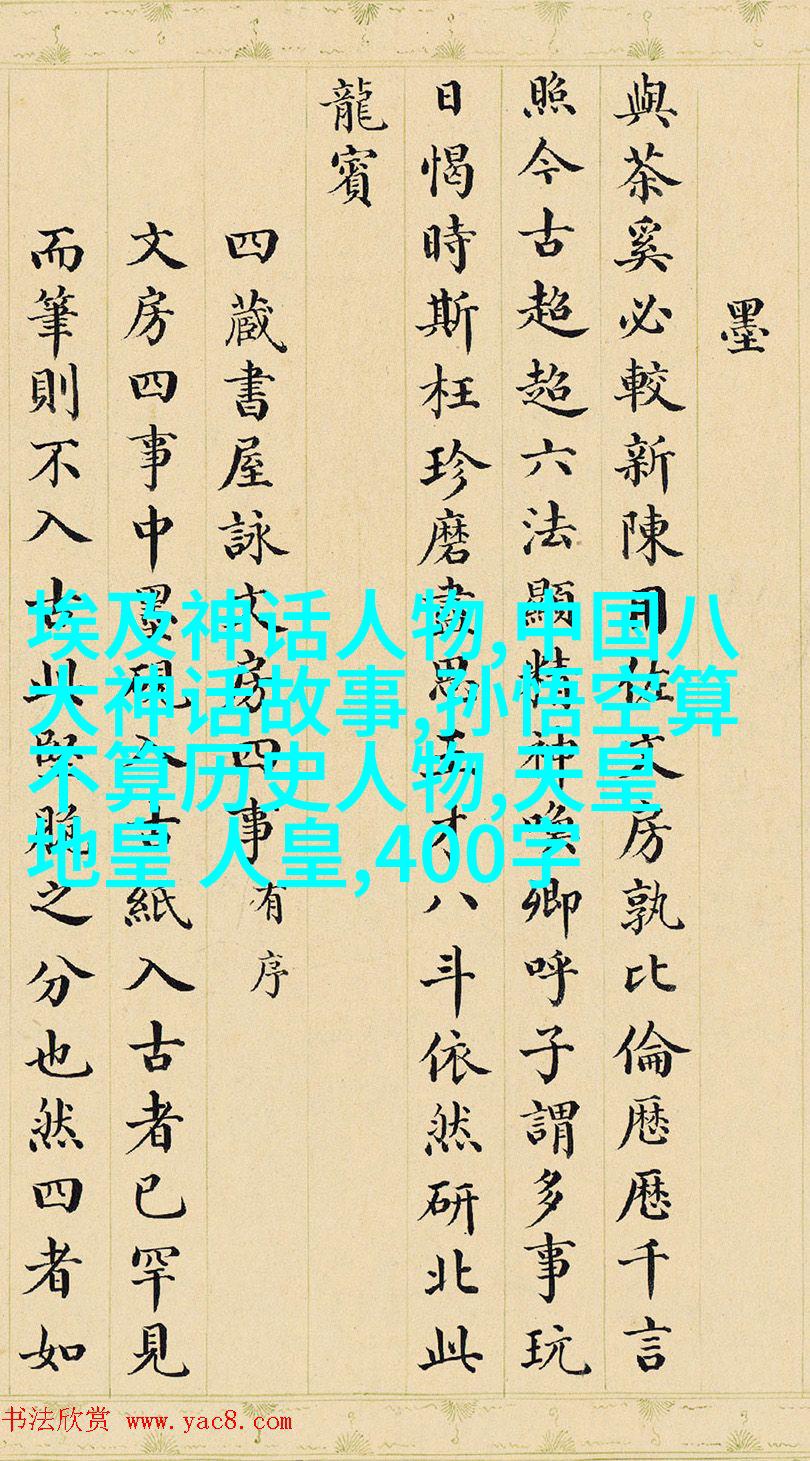 墨
與茶奚必較新陳目佐文房孰比倫歷歷千言
照今古超超六法顯精神喚卿呼子謂多事玩
日愒時斯枉珍磨盡思王才八斗依然研北此
龍賓
四蔵書屋詠文房四事有序
文房四事中墨硯入古紙入古者已罕見
而筆則不入古此堅脆之分也然四者如
埃及神话人物,中国八
大神话故事,孙悟空算
不算历史人物,天皇
地皇 人皇,400字
书法欣赏 www.yac8.com